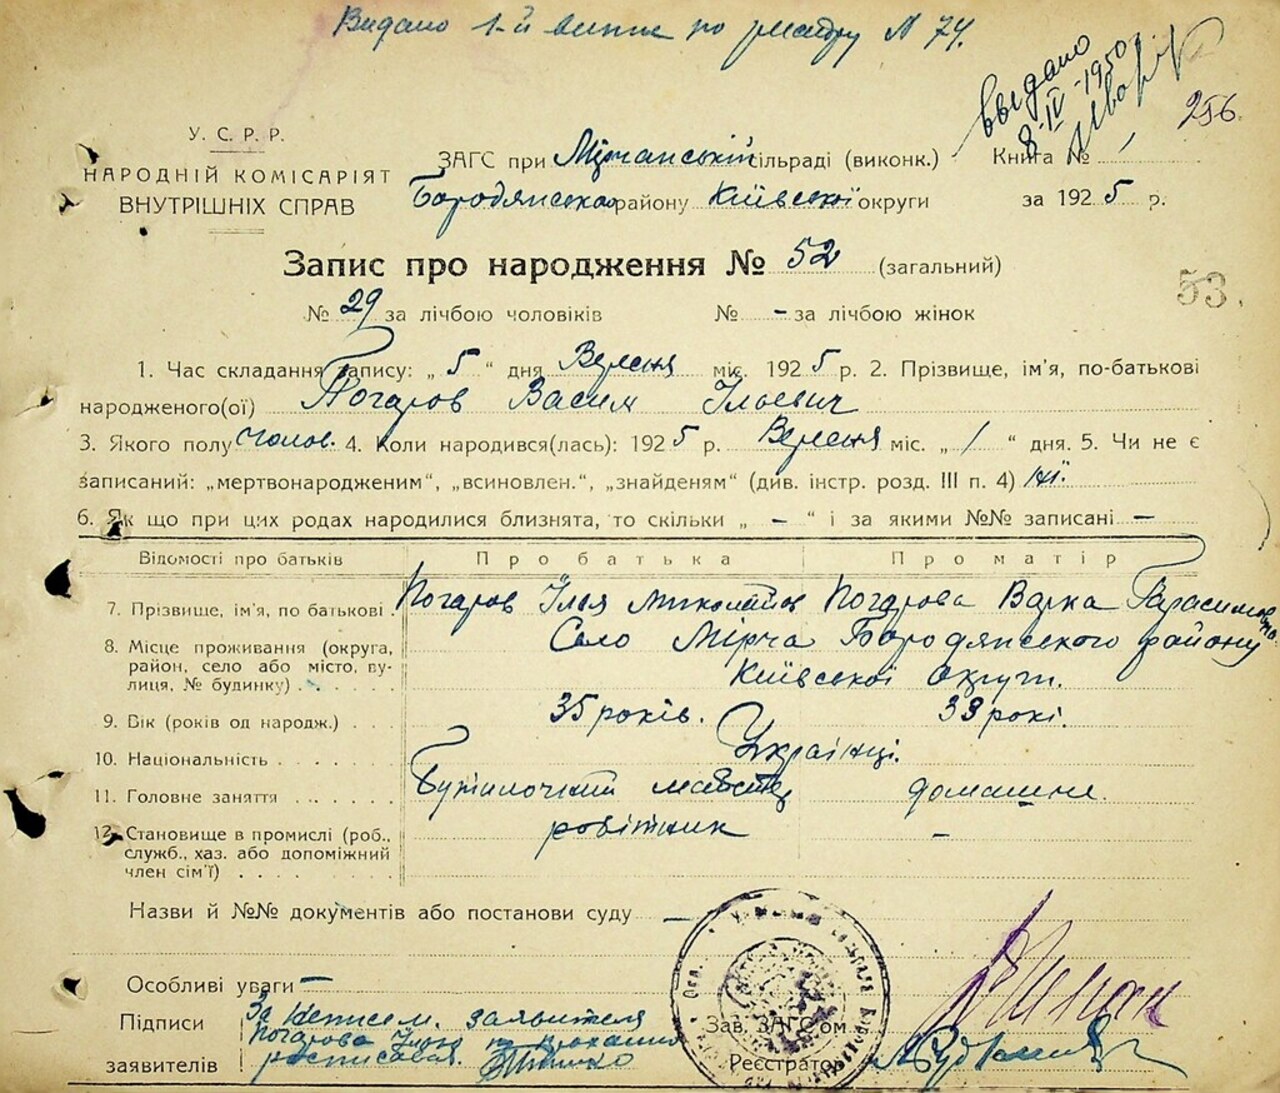 Видано 1-й випис по реєстру N 74.
Выдано
8-IV-1950
256.
У. С. Р. Р.
НАРОДНІЙ КОМІСАРІЯТ
ВНУТРІШНІХ СПРАВ
ЗАГС при Мірчанській сільраді (виконк.)
Бородянського району Київської округи
Книга №
за 1925 р.
Запис про народження № 52 (загальний)
53.
№ 29 за лічбою чоловіків № - за лічбою жінок
1. Час складання запису: „ 5 “ дня Вересня міс. 1925 р. 2. Прізвище, ім'я, по-батькові
народженого(ої) Погаров Васил Ільевич
3. Якого полу чолов. 4. Коли народився(лась): 1925 р. Вересня міс. „ 1 “ дня. 5. Чи не є
записаний: „мертвонародженим“, „всиновлен.“, „знайденям“ (див. інстр. розд. III п. 4) ні.
6. Як що при цих родах народилися близнята, то скільки „ - “ і за якими №№ записані -
Відомості про батьків Про батька Про матір
7. Прізвище, ім'я, по батькові. Погаров Ілья Миколайов Погарова Варка Гарасимовна
8. Місце проживання (округа, Село Мірча Бородянського району
район, село або місто, ву- Київської округи.
лиця, № будинку) . .
9. Вік (років од народж.) . . . 35 років. 33 рокі.
10. Національність . . . . . . Українці.
11. Головне заняття . . . . . . Бутилочний майстер домашне.
12. Становище в промислі (роб., робітник -
служб., хаз. або допоміжний
член сім'ї) . . . . . . .
Назви й №№ документів або постанови суду -
Особливі уваги -
Підписи За неписем. заявителя
Погарова Ілью по проханню
заявителів росписався.
Зав. ЗАГС'ом
Реєстратор